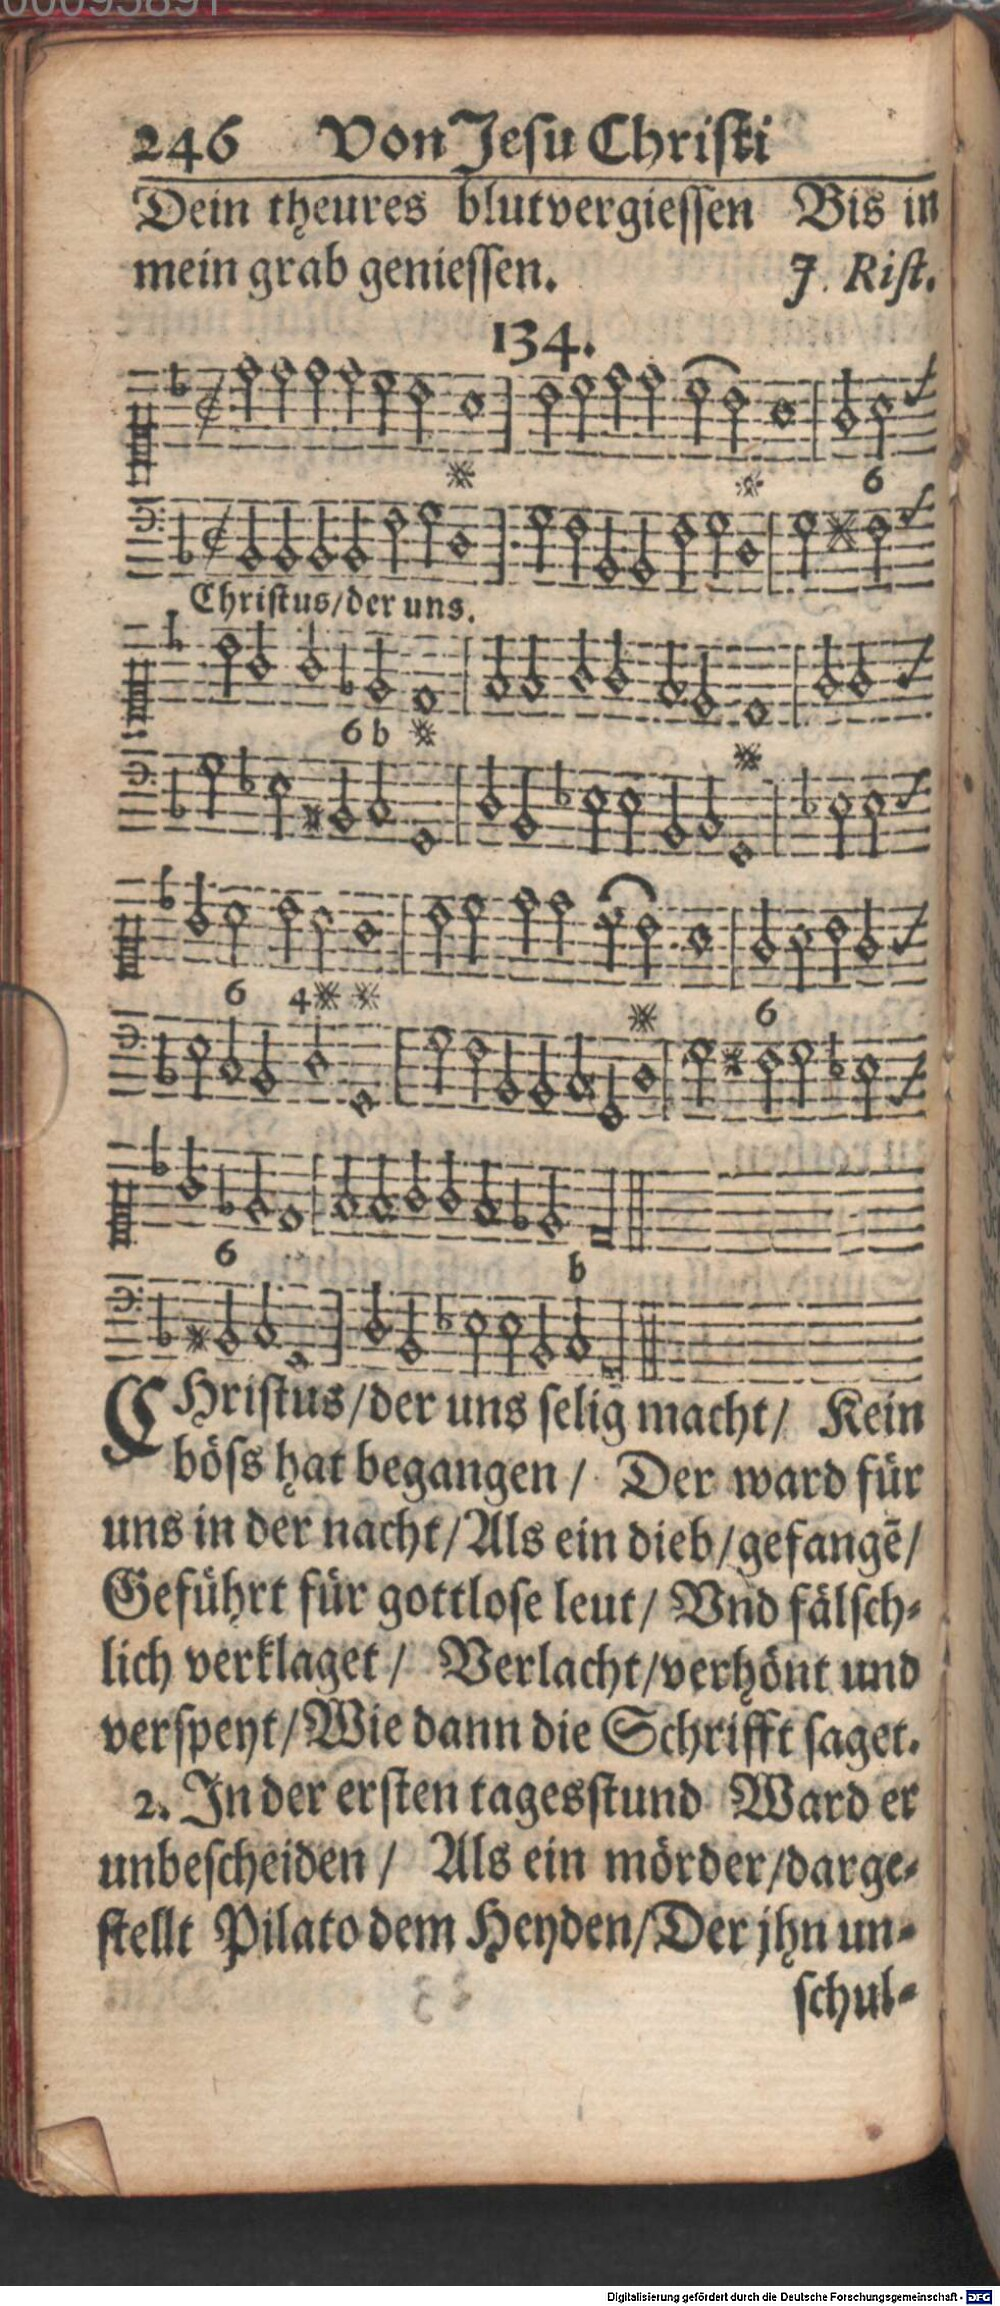 00095891
246 Von Jesu Christi
Dein theures blutvergiessen Bis in
mein grab geniessen. J. Rist.
134.
6
Christus/der uns.
6 b
6 4
6
6
b
CHristus/der uns selig macht/ Kein
böss hat begangen/ Der ward für
uns in der nacht/Als ein dieb/gefangē/
Geführt für gottlose leut/ Vnd fälsch-
lich verklaget/ Verlacht/verhönt und
verspeyt/Wie dann die Schrifft saget.
2. In der ersten tagesstund Ward er
unbescheiden/ Als ein mörder/darge-
stellt Pilato dem Heyden/Der jhn un-
schul-
Digitalisierung gefördert durch die Deutsche Forschungsgemeinschaft - DFG